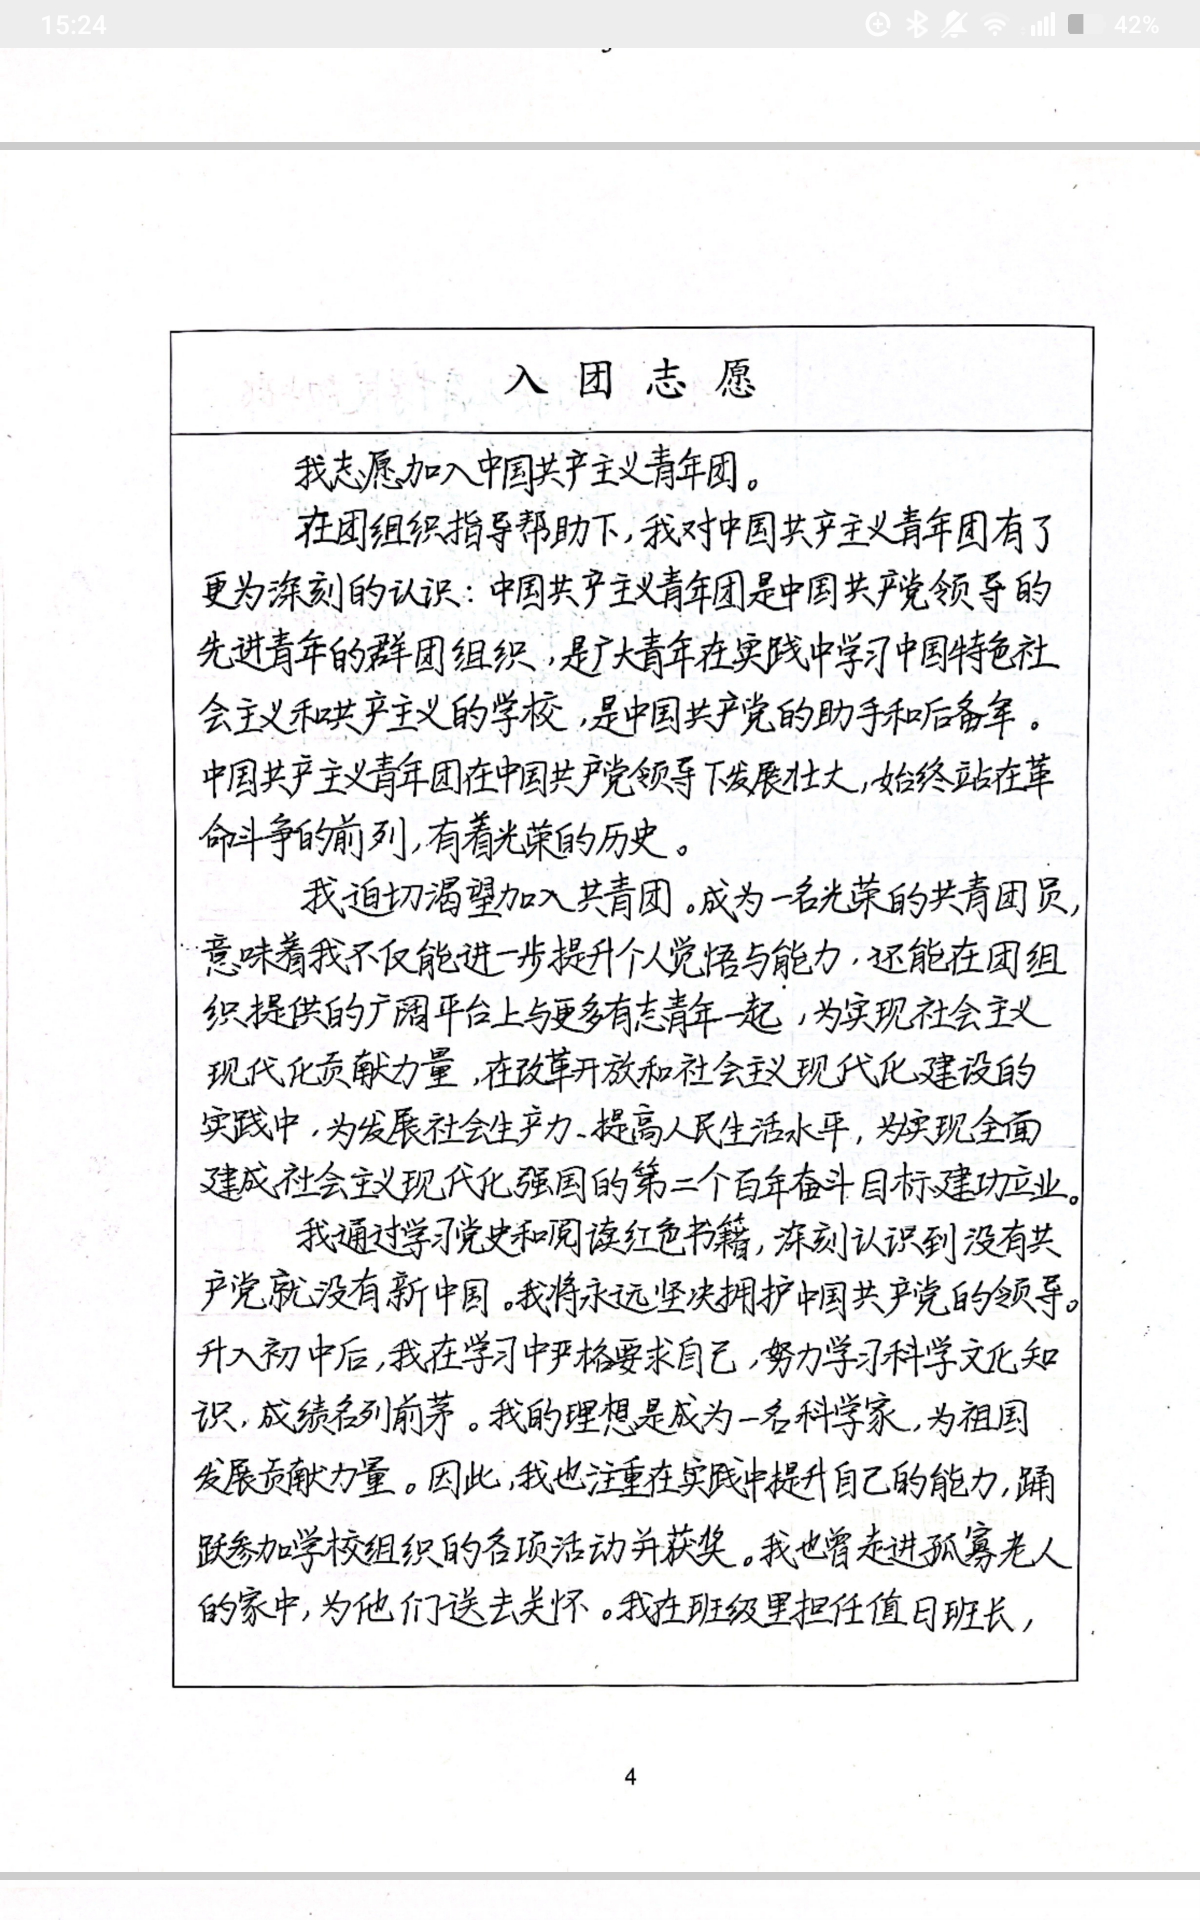 15:24
42%
入团志愿
我志愿加入中国共产主义青年团。
在团组织指导帮助下,我对中国共产主义青年团有了
更为深刻的认识:中国共产主义青年团是中国共产党领导的
先进青年的群团组织,是广大青年在实践中学习中国特色社
会主义和共产主义的学校,是中国共产党的助手和后备军。
中国共产主义青年团在中国共产党领导下发展壮大,始终站在革
命斗争的前列,有着光荣的历史。
我迫切渴望加入共青团。成为一名光荣的共青团员,
意味着我不仅能进一步提升个人觉悟与能力,还能在团组
织提供的广阔平台上与更多有志青年一起,为实现社会主义
现代化贡献力量,在改革开放和社会主义现代化建设的
实践中,为发展社会生产力、提高人民生活水平,为实现全面
建成社会主义现代化强国的第二个百年奋斗目标建功立业。
我通过学习党史和阅读红色书籍,深刻认识到没有共
产党就没有新中国。我将永远坚决拥护中国共产党的领导。
升入初中后,我在学习中严格要求自己,努力学习科学文化知
识,成绩名列前茅。我的理想是成为一名科学家,为祖国
发展贡献力量。因此,我也注重在实践中提升自己的能力,踊
跃参加学校组织的各项活动并获奖。我也曾走进孤寡老人
的家中,为他们送去关怀。我在班级里担任值日班长,
4